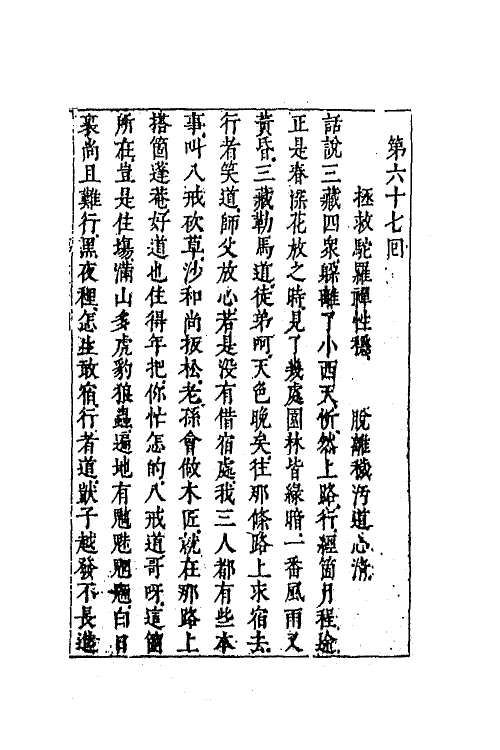 第六十七囘
拯救駝羅禪性穩　脫離穢汚道心淸
話說三藏四衆躱離了小西天忻然上路行經箇月程途
正是春深花放之時見了幾處園林皆綠暗一番風雨又
黃昏三藏勒馬道徒弟呵天色晚矣往那條路上求宿去
行者笑道師父放心若是没有借宿處我三人都有些本
事叫八戒砍草沙和尚扳松老孫會做木匠就在那路上
搭箇蓬菴好道也住得年把你忙怎的八戒道哥呀這箇
所在豈是住塲滿山多虎豹狼蟲遍地有魑魅魍魎白日
裏尚且難行黑夜裡怎生敢宿行者道獃子越發不長進